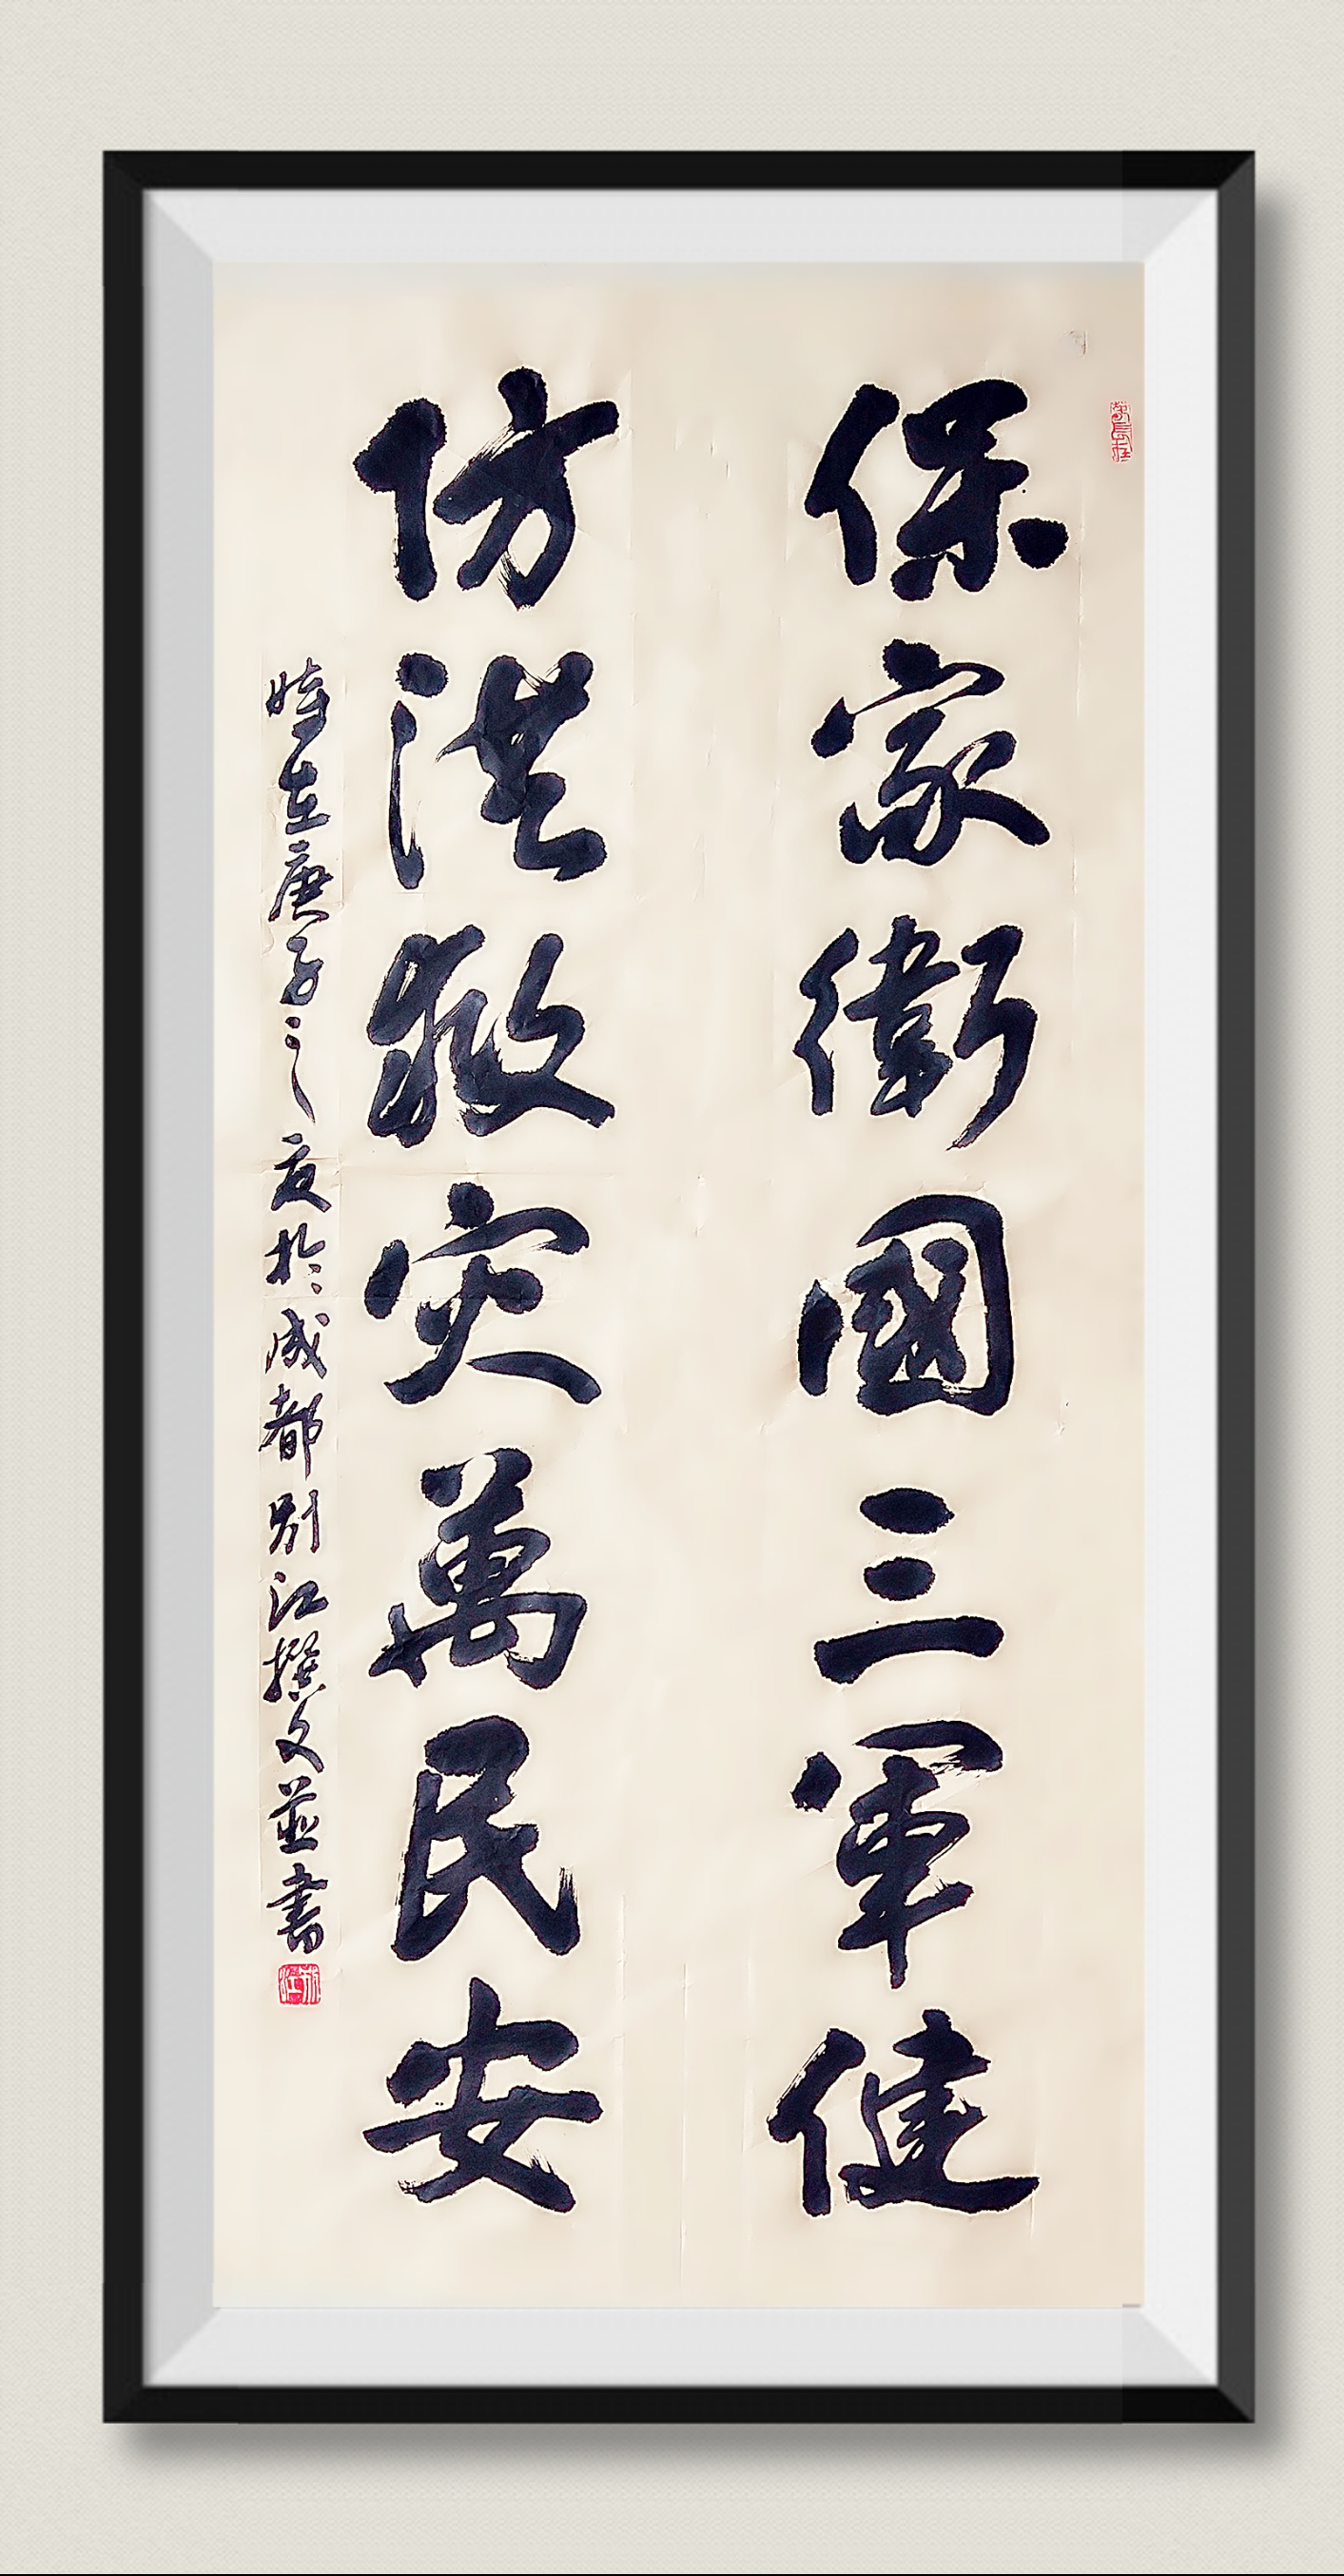 保家衛國三軍健
仿洪救灾萬民安
時在庚子之夏於成都別江撰文並書